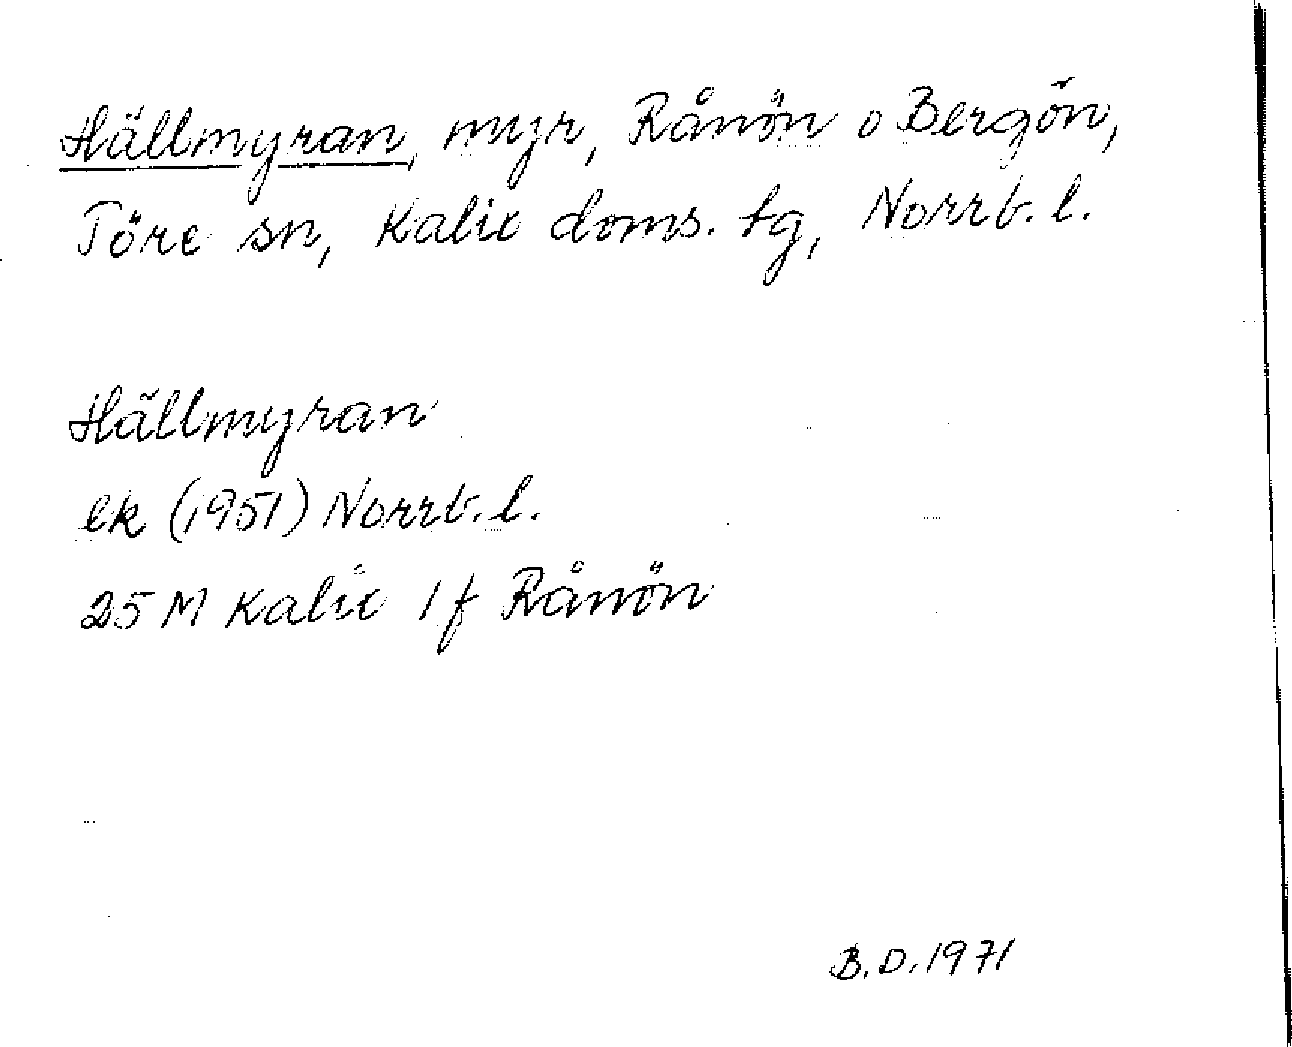 Hällmyran, myr, Rånön o Bergön,
Töre sn, Kalix doms. tg, Norrb. l.
Hällmyran
ek (1951) Norrb. l.
25 M Kalix 1 f Rånön
B.D. 1971